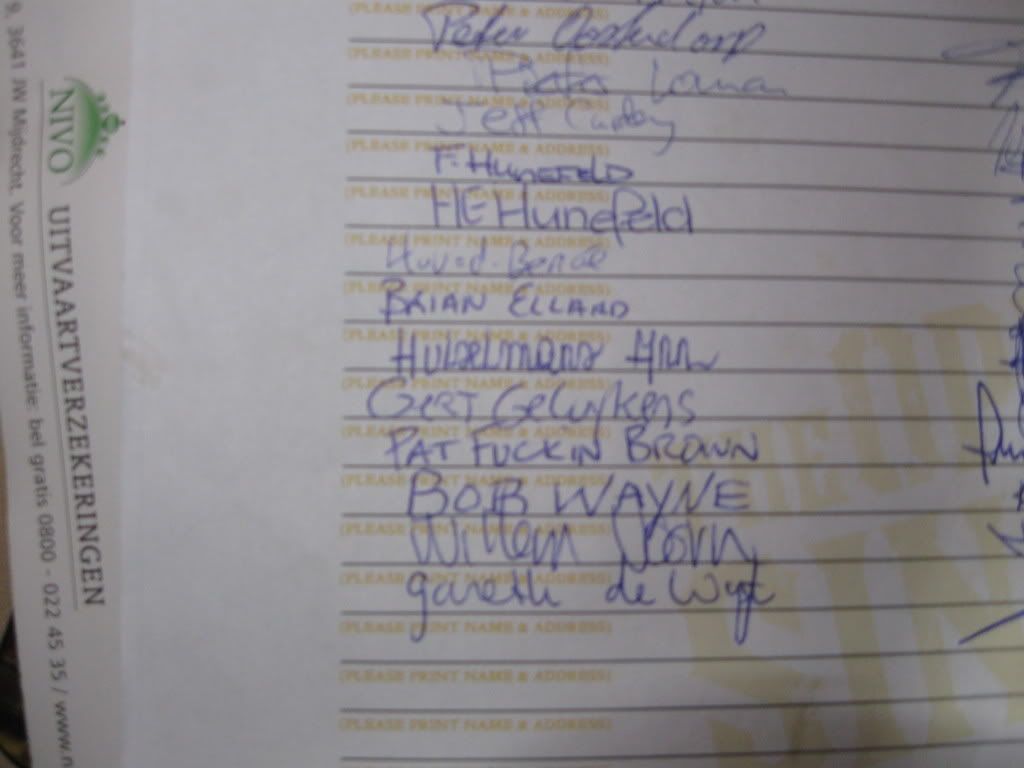 (PLEASE PRINT NAME & ADDRESS)
Peter Oostendorp
(PLEASE PRINT NAME & ADDRESS)
Pieter
(PLEASE PRINT NAME & ADDRESS)
Jeff
(PLEASE PRINT NAME & ADDRESS)
F. HUNEFELD
(PLEASE PRINT NAME & ADDRESS)
HE Hunefeld
(PLEASE PRINT NAME & ADDRESS)
(PLEASE PRINT NAME & ADDRESS)
BRIAN ELLARD
(PLEASE PRINT NAME & ADDRESS)
Hulselmans Ann
(PLEASE PRINT NAME & ADDRESS)
GERT Geluykens
(PLEASE PRINT NAME & ADDRESS)
PAT FUCKIN BROWN
(PLEASE PRINT NAME & ADDRESS)
BOB WAYNE
(PLEASE PRINT NAME & ADDRESS)
Willem
(PLEASE PRINT NAME & ADDRESS)
gareth de Wyt
(PLEASE PRINT NAME & ADDRESS)
(PLEASE PRINT NAME & ADDRESS)
(PLEASE PRINT NAME & ADDRESS)
NIVO
UITVAARTVERZEKERINGEN
9, 3641 JW Mijdrecht. Voor meer informatie: bel gratis 0800 - 022 45 35 / www.n